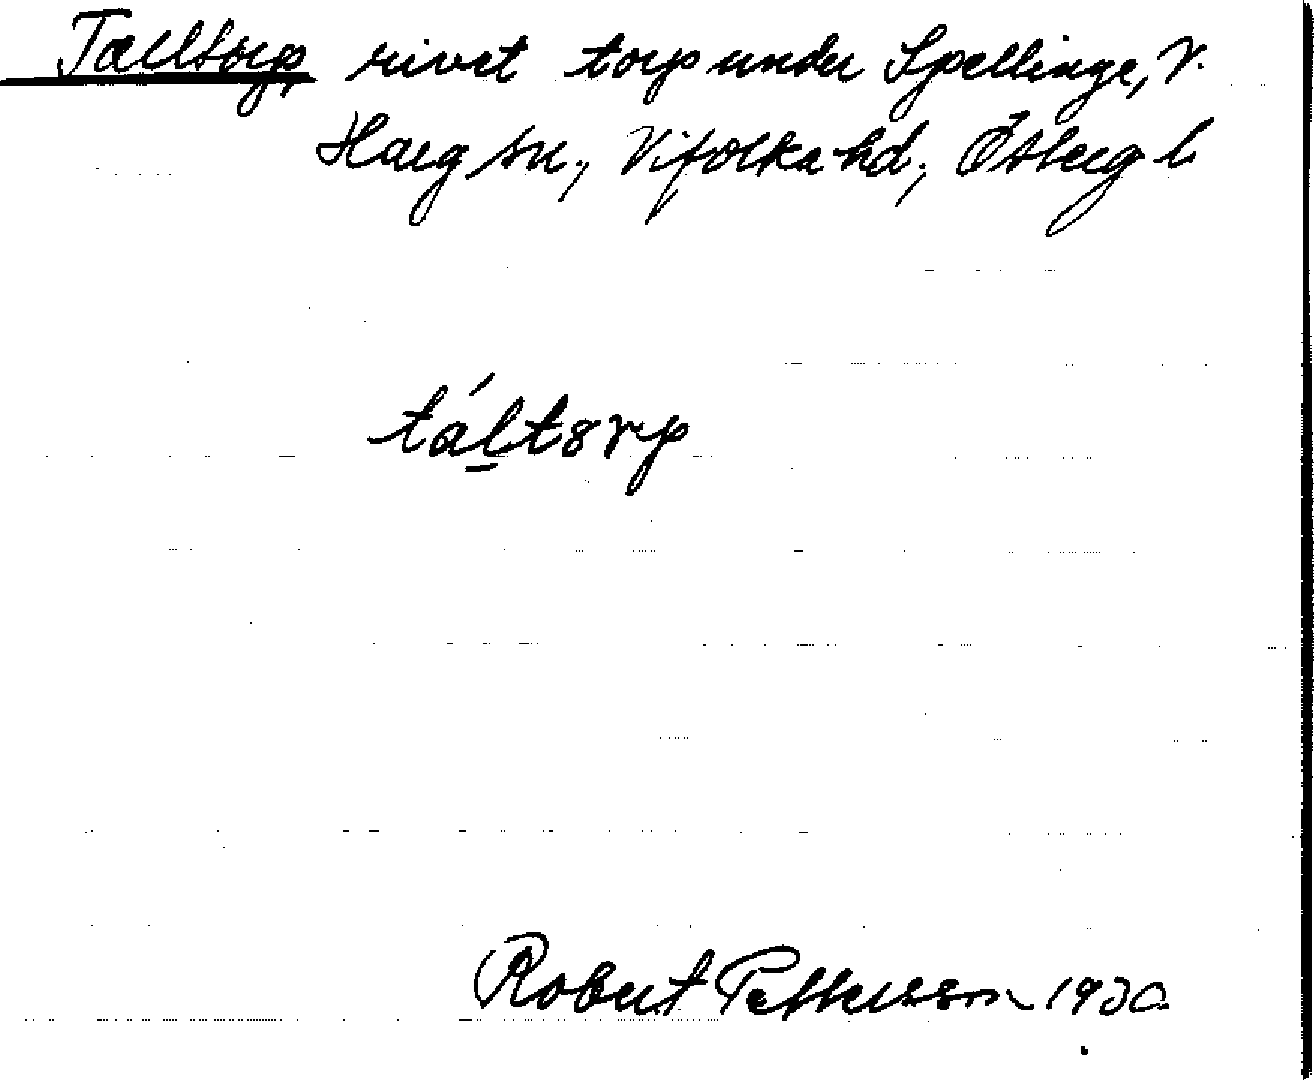 Talltorp, rivet torp under Spellinge, V.
Harg sn., Vifolka hd., Östergl.
táltorp
Robert Pettersson 1930